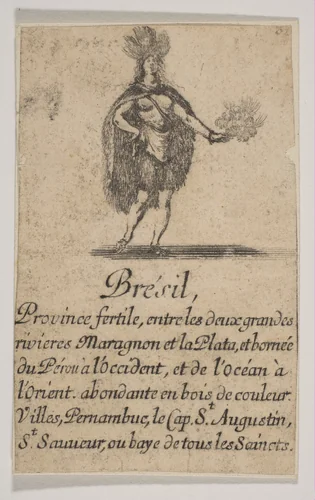 Brésil,
Province fertile, entre les deux grandes
rivieres Maragnon et la Plata, et bornée
du Pérou à l'Occident, et de l'Océan à
l'Orient. abondante en bois de couleur.
Villes, Pernambuc, le Cap. St. Augustin,
St. Sauveur, ou baye de tous les Saincts.